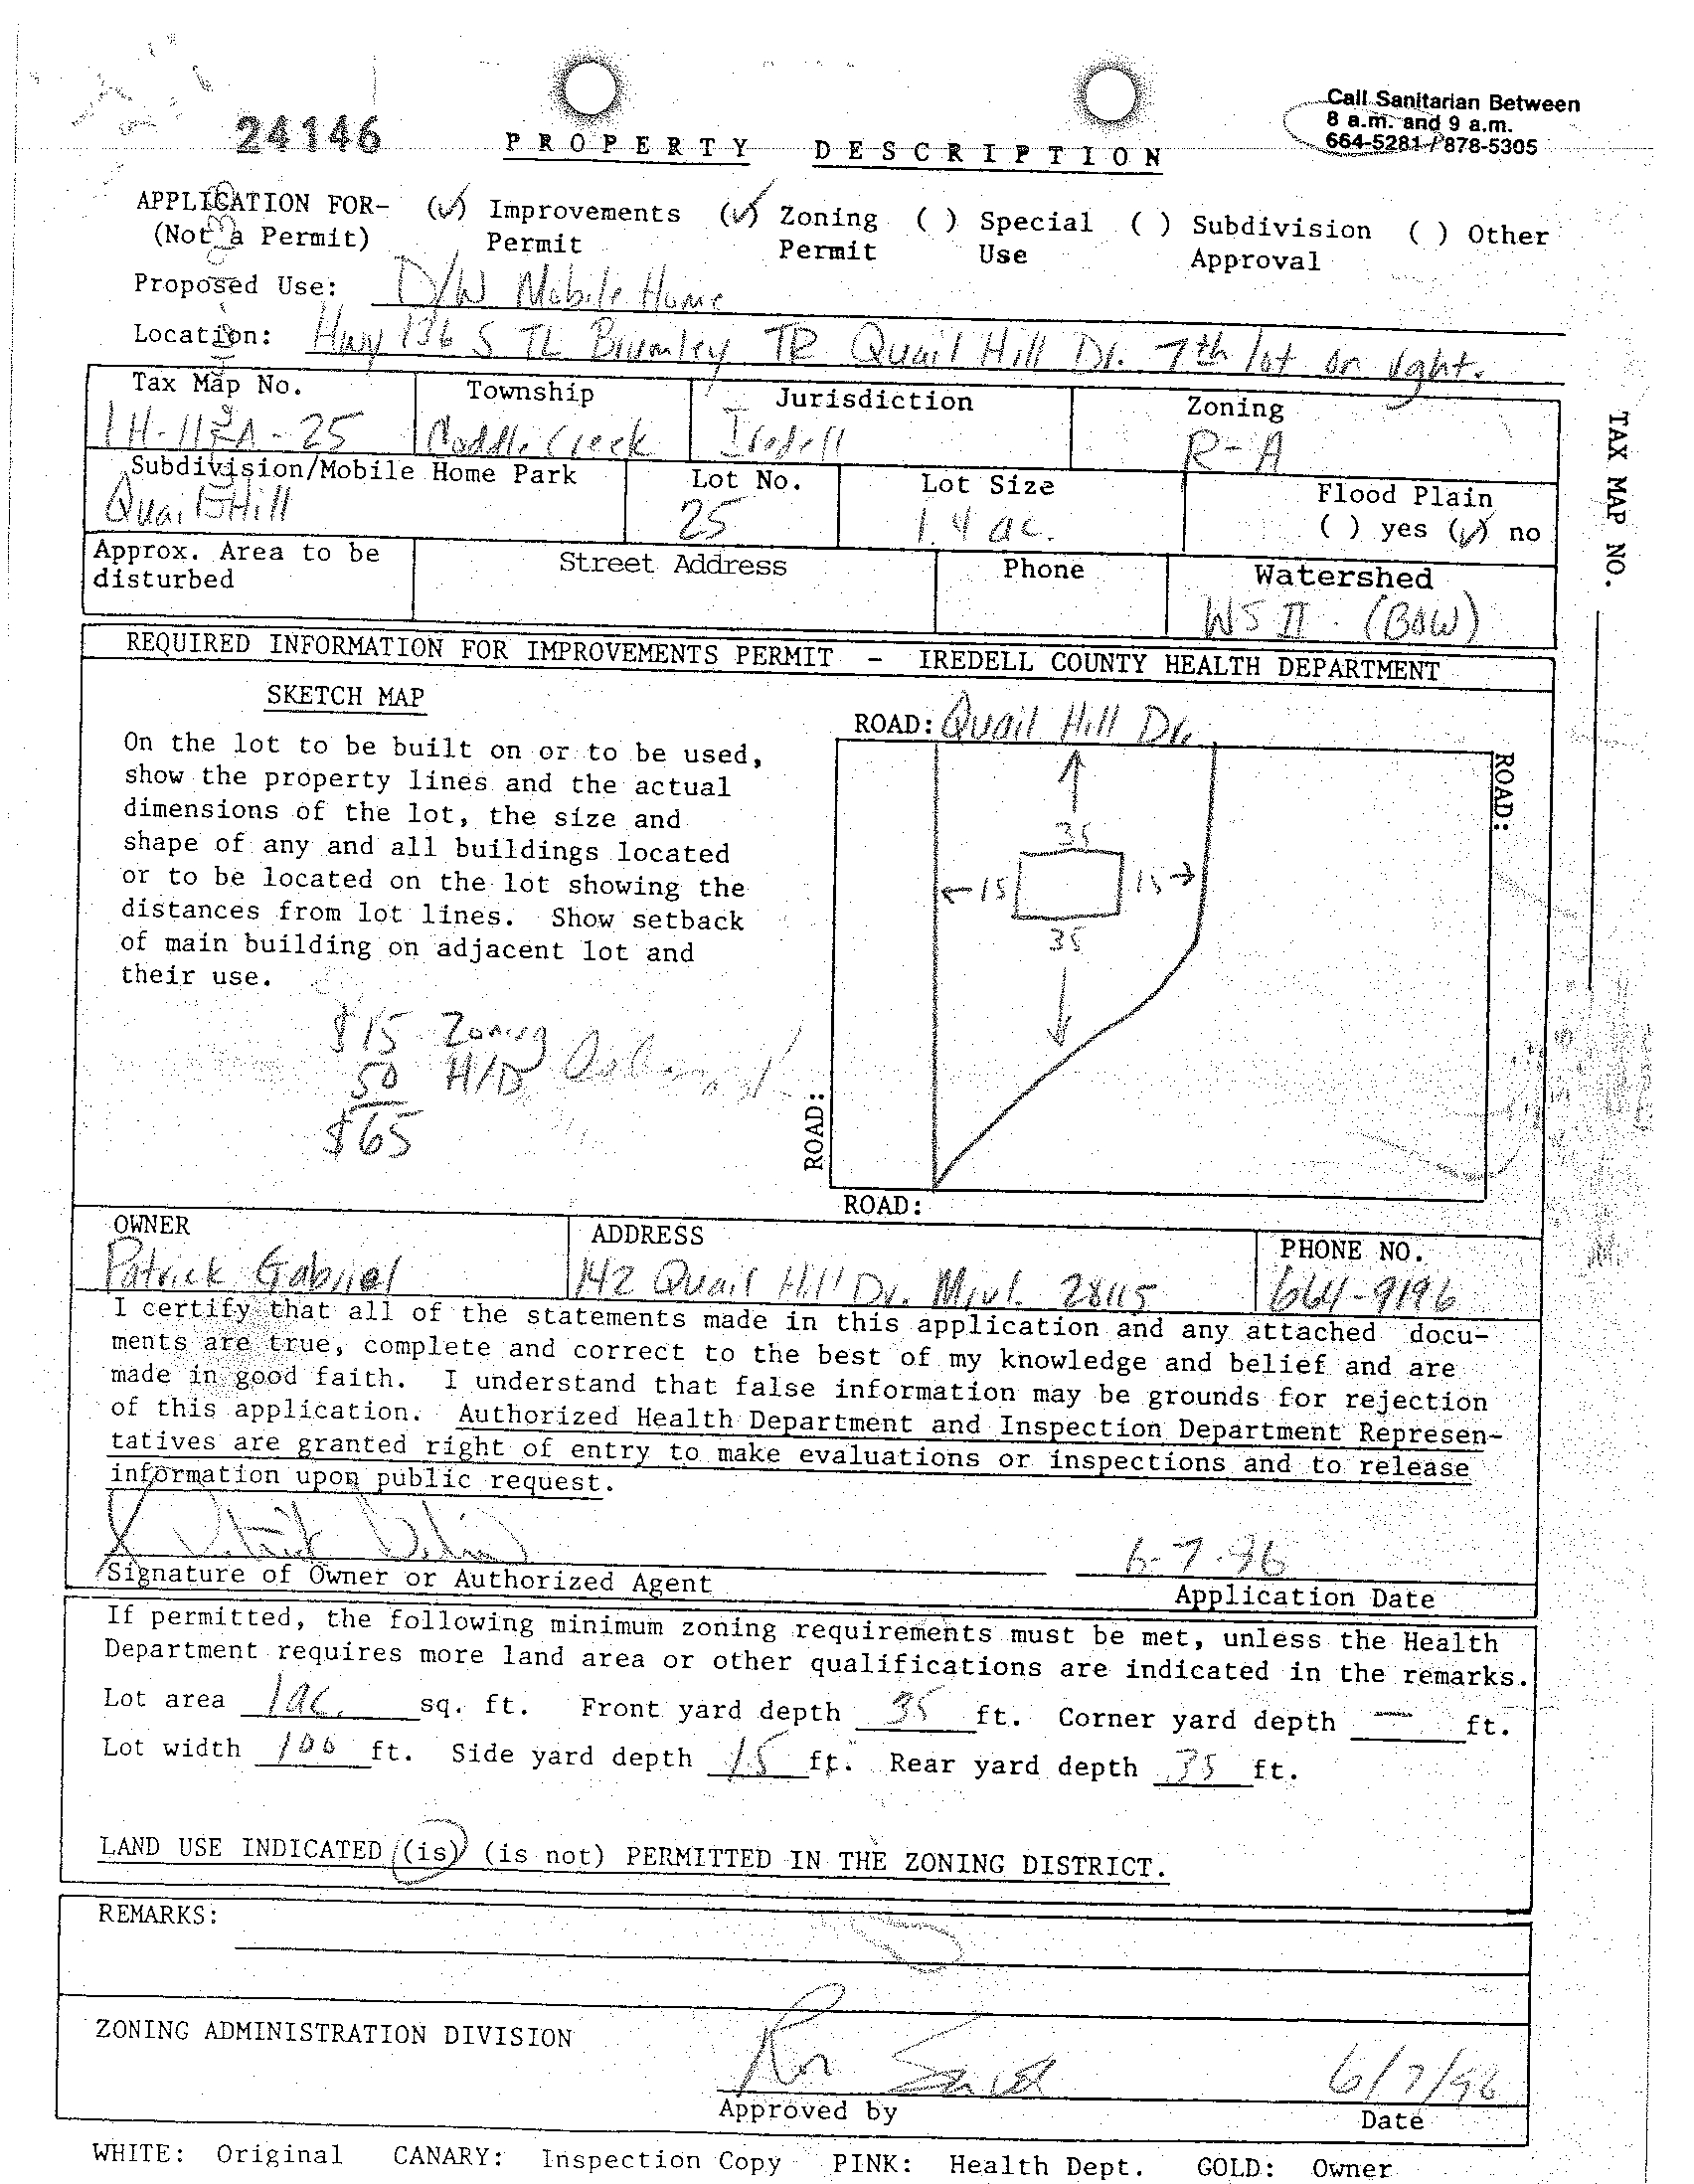 Call Sanitarian Between
8 a.m. and 9 a.m.
664-5281 / 878-5305
24146
PROPERTY DESCRIPTION
APPLICATION FOR- (✓) Improvements (✓) Zoning ( ) Special ( ) Subdivision ( ) Other
(Not a Permit) Permit Permit Use Approval
Proposed Use: D/W Mobile Home
Location: Hwy 136 S TL Brumley TR Quail Hill Dr. 7th lot on right.
Tax Map No. Township Jurisdiction Zoning
Coddle Creek Iredell R-A
Subdivision/Mobile Home Park Lot No. Lot Size Flood Plain
Quail Hill 25 1.4 ac. ( ) yes (✓) no
Approx. Area to be disturbed Street Address Phone Watershed
WS II (BOW)
TAX MAP NO.
REQUIRED INFORMATION FOR IMPROVEMENTS PERMIT - IREDELL COUNTY HEALTH DEPARTMENT
SKETCH MAP
On the lot to be built on or to be used,
show the property lines and the actual
dimensions of the lot, the size and
shape of any and all buildings located
or to be located on the lot showing the
distances from lot lines. Show setback
of main building on adjacent lot and
their use.
$15 Zoning
50 H/D
$65
ROAD: Quail Hill Dr.
ROAD:
35
15 15
35
ROAD:
ROAD:
OWNER ADDRESS PHONE NO.
Patrick Gabriel 142 Quail Hill Dr. Mivl. 28115 664-9196
I certify that all of the statements made in this application and any attached docu-
ments are true, complete and correct to the best of my knowledge and belief and are
made in good faith. I understand that false information may be grounds for rejection
of this application. Authorized Health Department and Inspection Department Represen-
tatives are granted right of entry to make evaluations or inspections and to release
information upon public request.
6-7-96
Signature of Owner or Authorized Agent Application Date
If permitted, the following minimum zoning requirements must be met, unless the Health
Department requires more land area or other qualifications are indicated in the remarks.
Lot area 1 ac. sq. ft. Front yard depth 35 ft. Corner yard depth — ft.
Lot width 100 ft. Side yard depth 15 ft. Rear yard depth 35 ft.
LAND USE INDICATED (is) (is not) PERMITTED IN THE ZONING DISTRICT.
REMARKS:
ZONING ADMINISTRATION DIVISION
6/7/96
Approved by Date
WHITE: Original CANARY: Inspection Copy PINK: Health Dept. GOLD: Owner